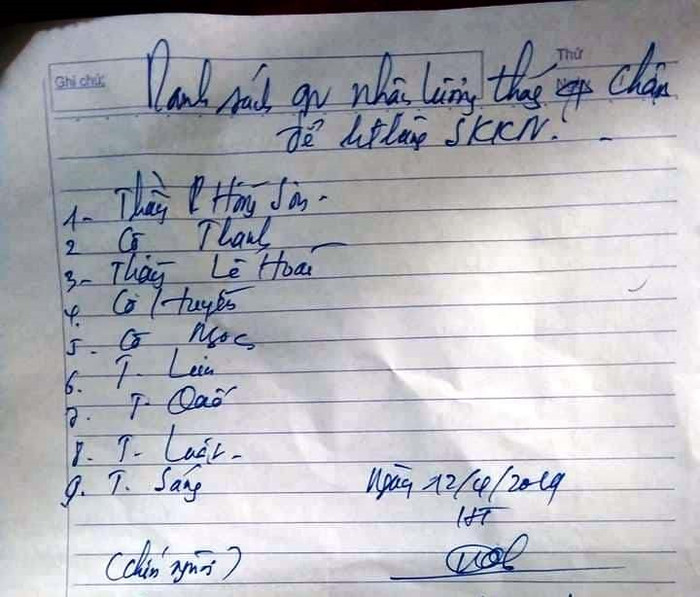 Ghi chú:
Thứ
Danh sách gv nhận lương tháng chậm
để hthàng SKKN.
1- Thầy P Hồng Sơn -
2 Cô Thanh
3- Thầy Lê Hoài
4. Cô Huyền
5. Cô Ngọc
6. T. Lưu
7. T. Quố
8. T. Luật -
9. T. Sáng
Ngày 12/4/2019
HT
(chín người)